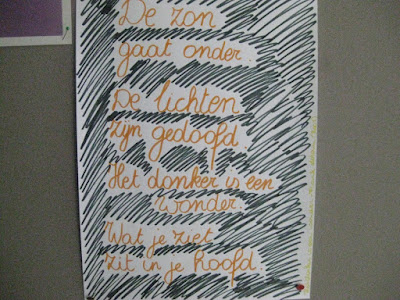 De zon
gaat onder.
De lichten
zijn gedoofd.
Het donker is een
wonder.
Wat je ziet
zit in je hoofd.